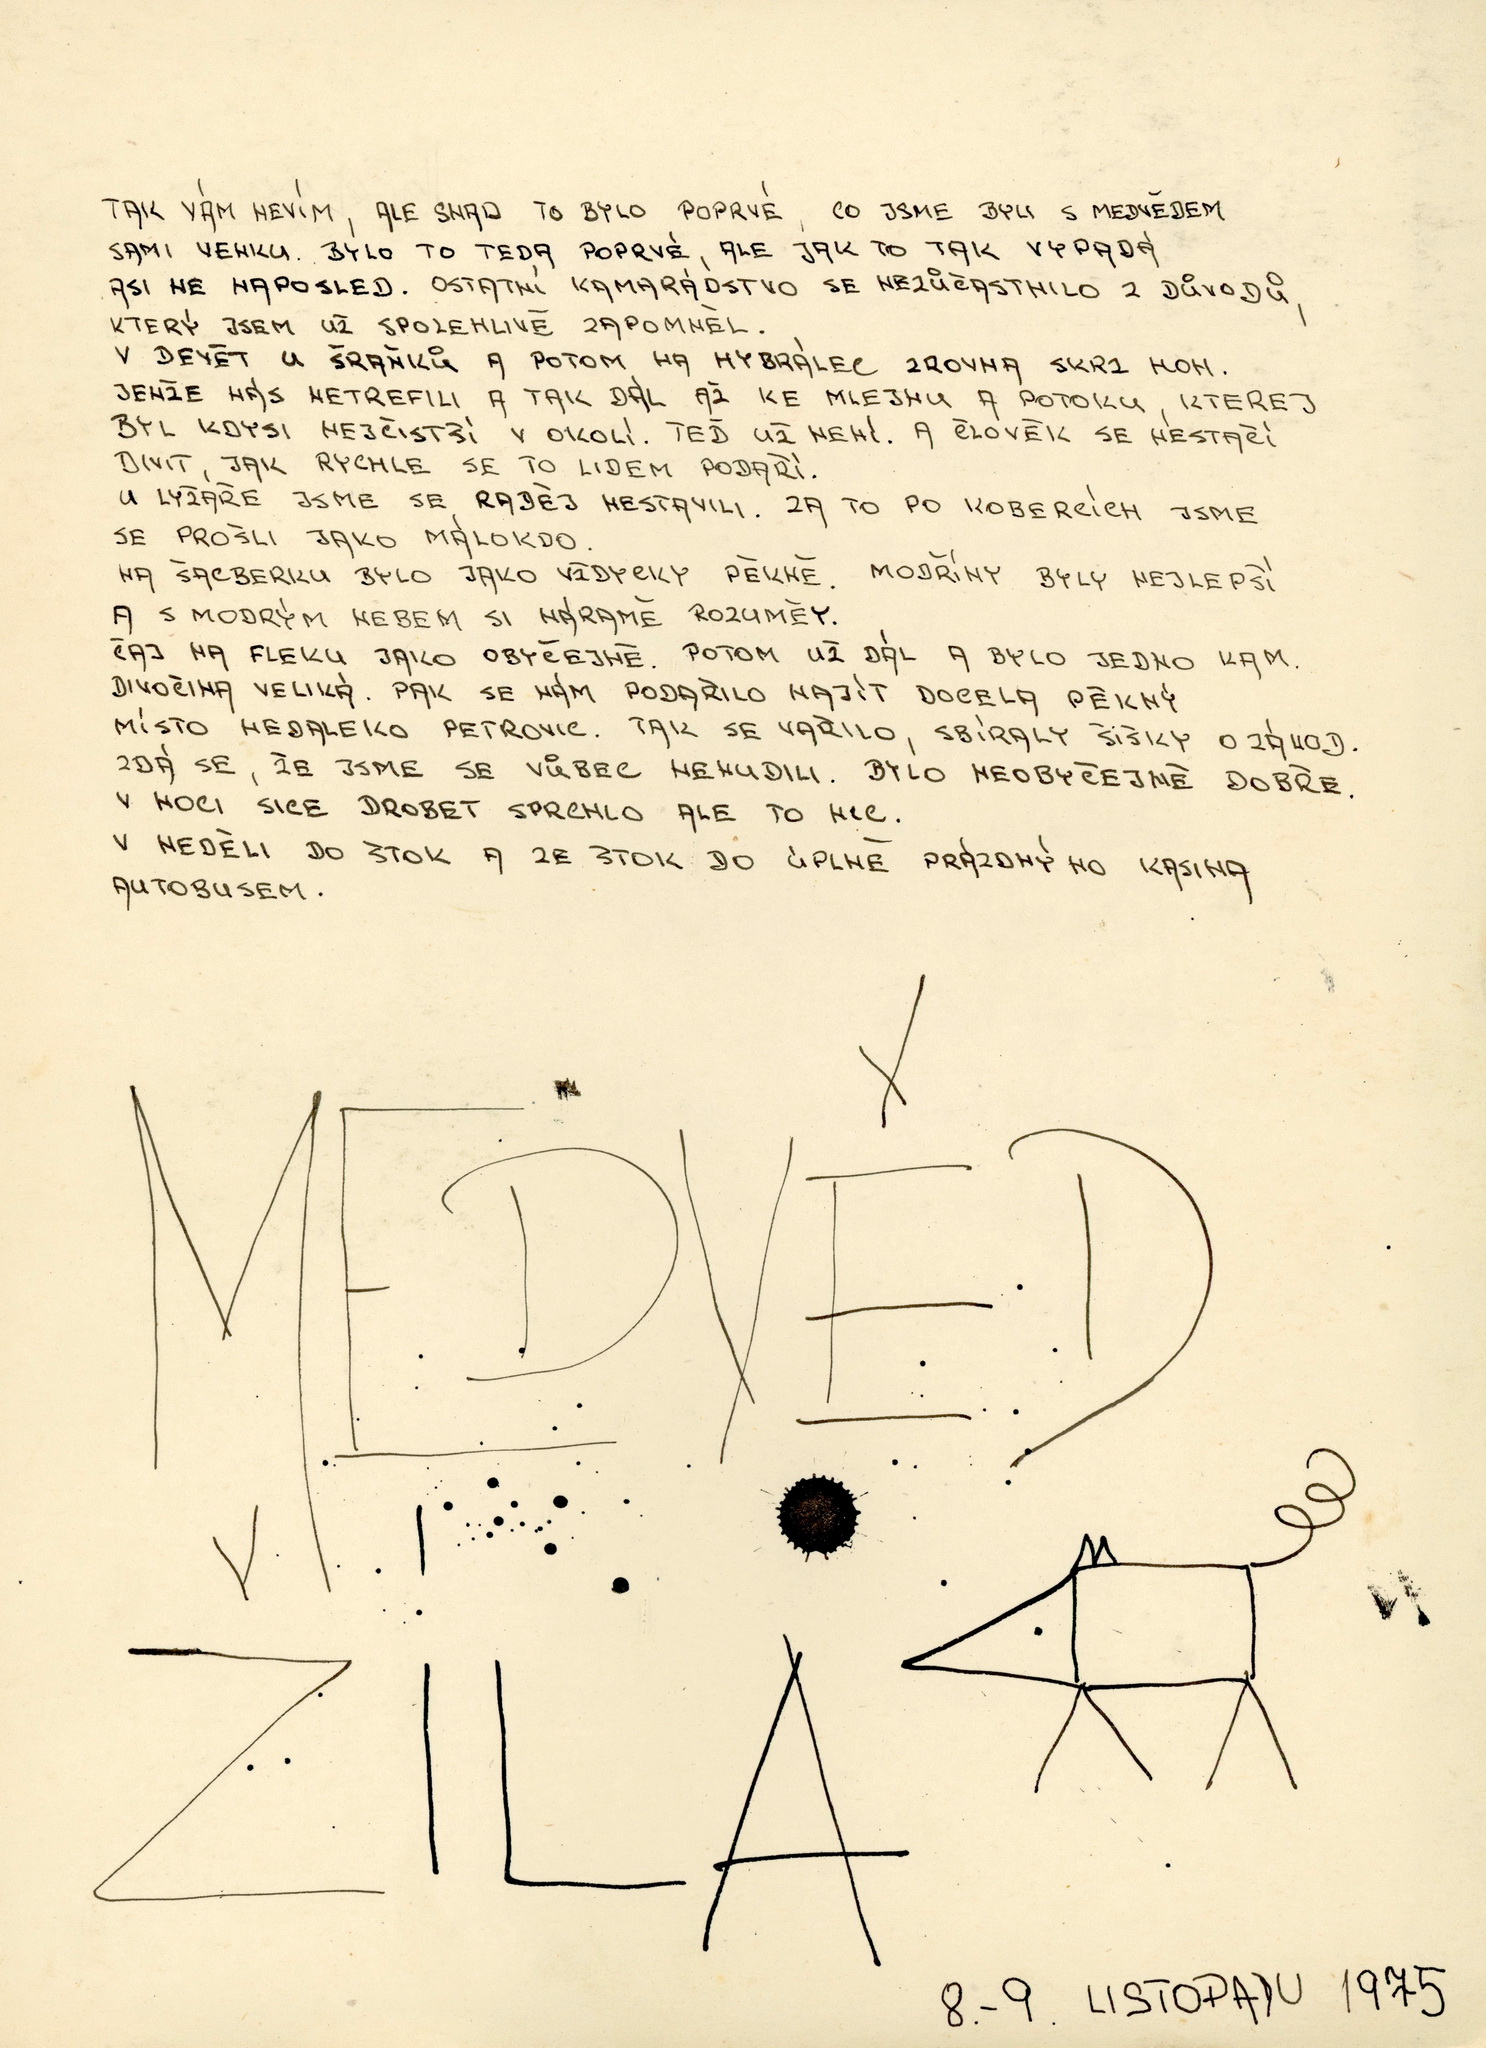 TAK VÁM NEVÍM, ALE SNAD TO BYLO POPRVÉ, CO JSME BYLI S MEDVĚDEM
SAMI VENKU. BYLO TO TEDA POPRVÉ, ALE JAK TO TAK VYPADÁ
ASI NE NAPOSLED. OSTATNÍ KAMARÁDSTVO SE NEZÚČASTNILO Z DŮVODŮ,
KTERÝ JSEM UŽ SPOLEHLIVĚ ZAPOMNĚL.
V DEVĚT U ŠRAŇKŮ A POTOM NA HYBRÁLEC ZROVNA SKRZ HON.
JENŽE NÁS NETREFILI A TAK DÁL AŽ KE MLEJNU A POTOKU, KTEREJ
BYL KDYSI NEJČISTŠÍ V OKOLÍ. TEĎ UŽ NENÍ. A ČLOVĚK SE NESTAČÍ
DIVIT, JAK RYCHLE SE TO LIDEM PODAŘÍ.
U LYŽAŘE JSME SE RADĚJ NESTAVILI. ZA TO PO KOBERCÍCH JSME
SE PROŠLI JAKO MÁLOKDO.
NA ŠACBERKU BYLO JAKO VŽDYCKY PĚKNĚ. MODŘÍNY BYLY NEJLEPŠÍ
A S MODRÝM NEBEM SI NÁRAMĚ ROZUMĚY.
ČAJ NA FLEKU JAKO OBYČEJNĚ. POTOM UŽ DÁL A BYLO JEDNO KAM.
DIVOČINA VELIKÁ. PAK SE NÁM PODAŘILO NAJÍT DOCELA PĚKNÝ
MÍSTO NEDALEKO PETROVIC. TAK SE VAŘILO, SBÍRALY ŠIŠKY O ZÁVOD.
ZDÁ SE, ŽE JSME SE VŮBEC NENUDILI. BYLO NEOBYČEJNĚ DOBŘE.
V NOCI SICE DROBET SPRCHLO ALE TO NIC.
V NEDĚLI DO ŠTOK A ZE ŠTOK DO ÚPLNĚ PRÁZDNÝHO KASINA
AUTOBUSEM.
MEDVĚD
ŽÍLA
8.-9. LISTOPADU 1975